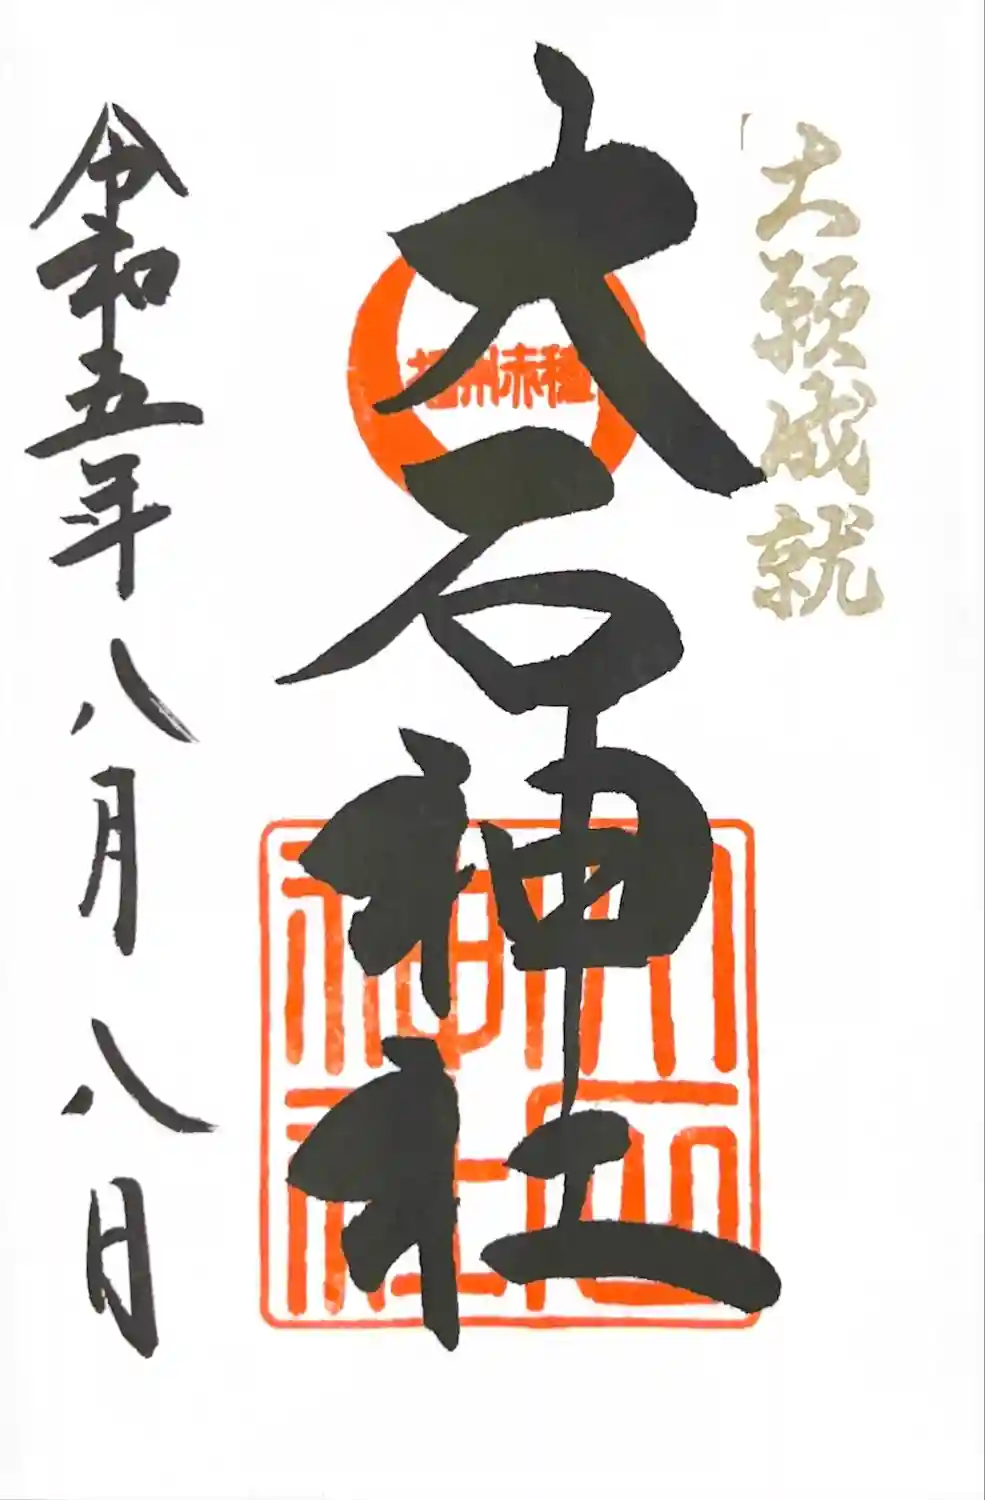 大願成就
播州赤穂
大石神社
大石神社
令和五年八月八日